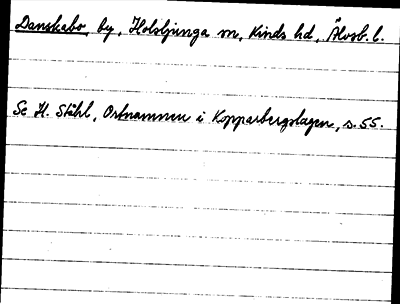 Danskabo, by, Holsljunga sn, Kinds hd, Älvsb. l.
Se H. Ståhl, Ortnamnen i Kopparbergslagen, s. 55.